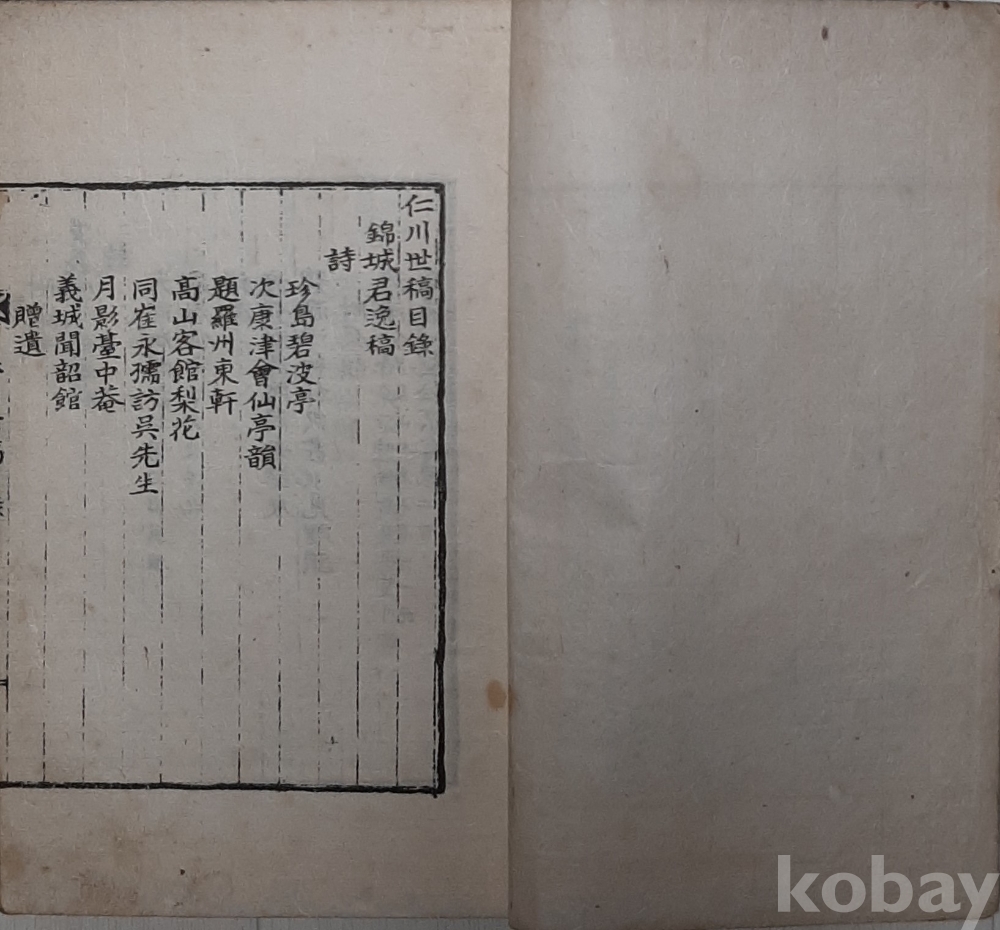 仁川世稿目錄
錦城君逸稿
詩
珍島碧波亭
次康津會仙亭韻
題羅州東軒
高山客館梨花
同崔永孺訪吳先生
月影臺中菴
義城聞韶館
贈遺
kobay